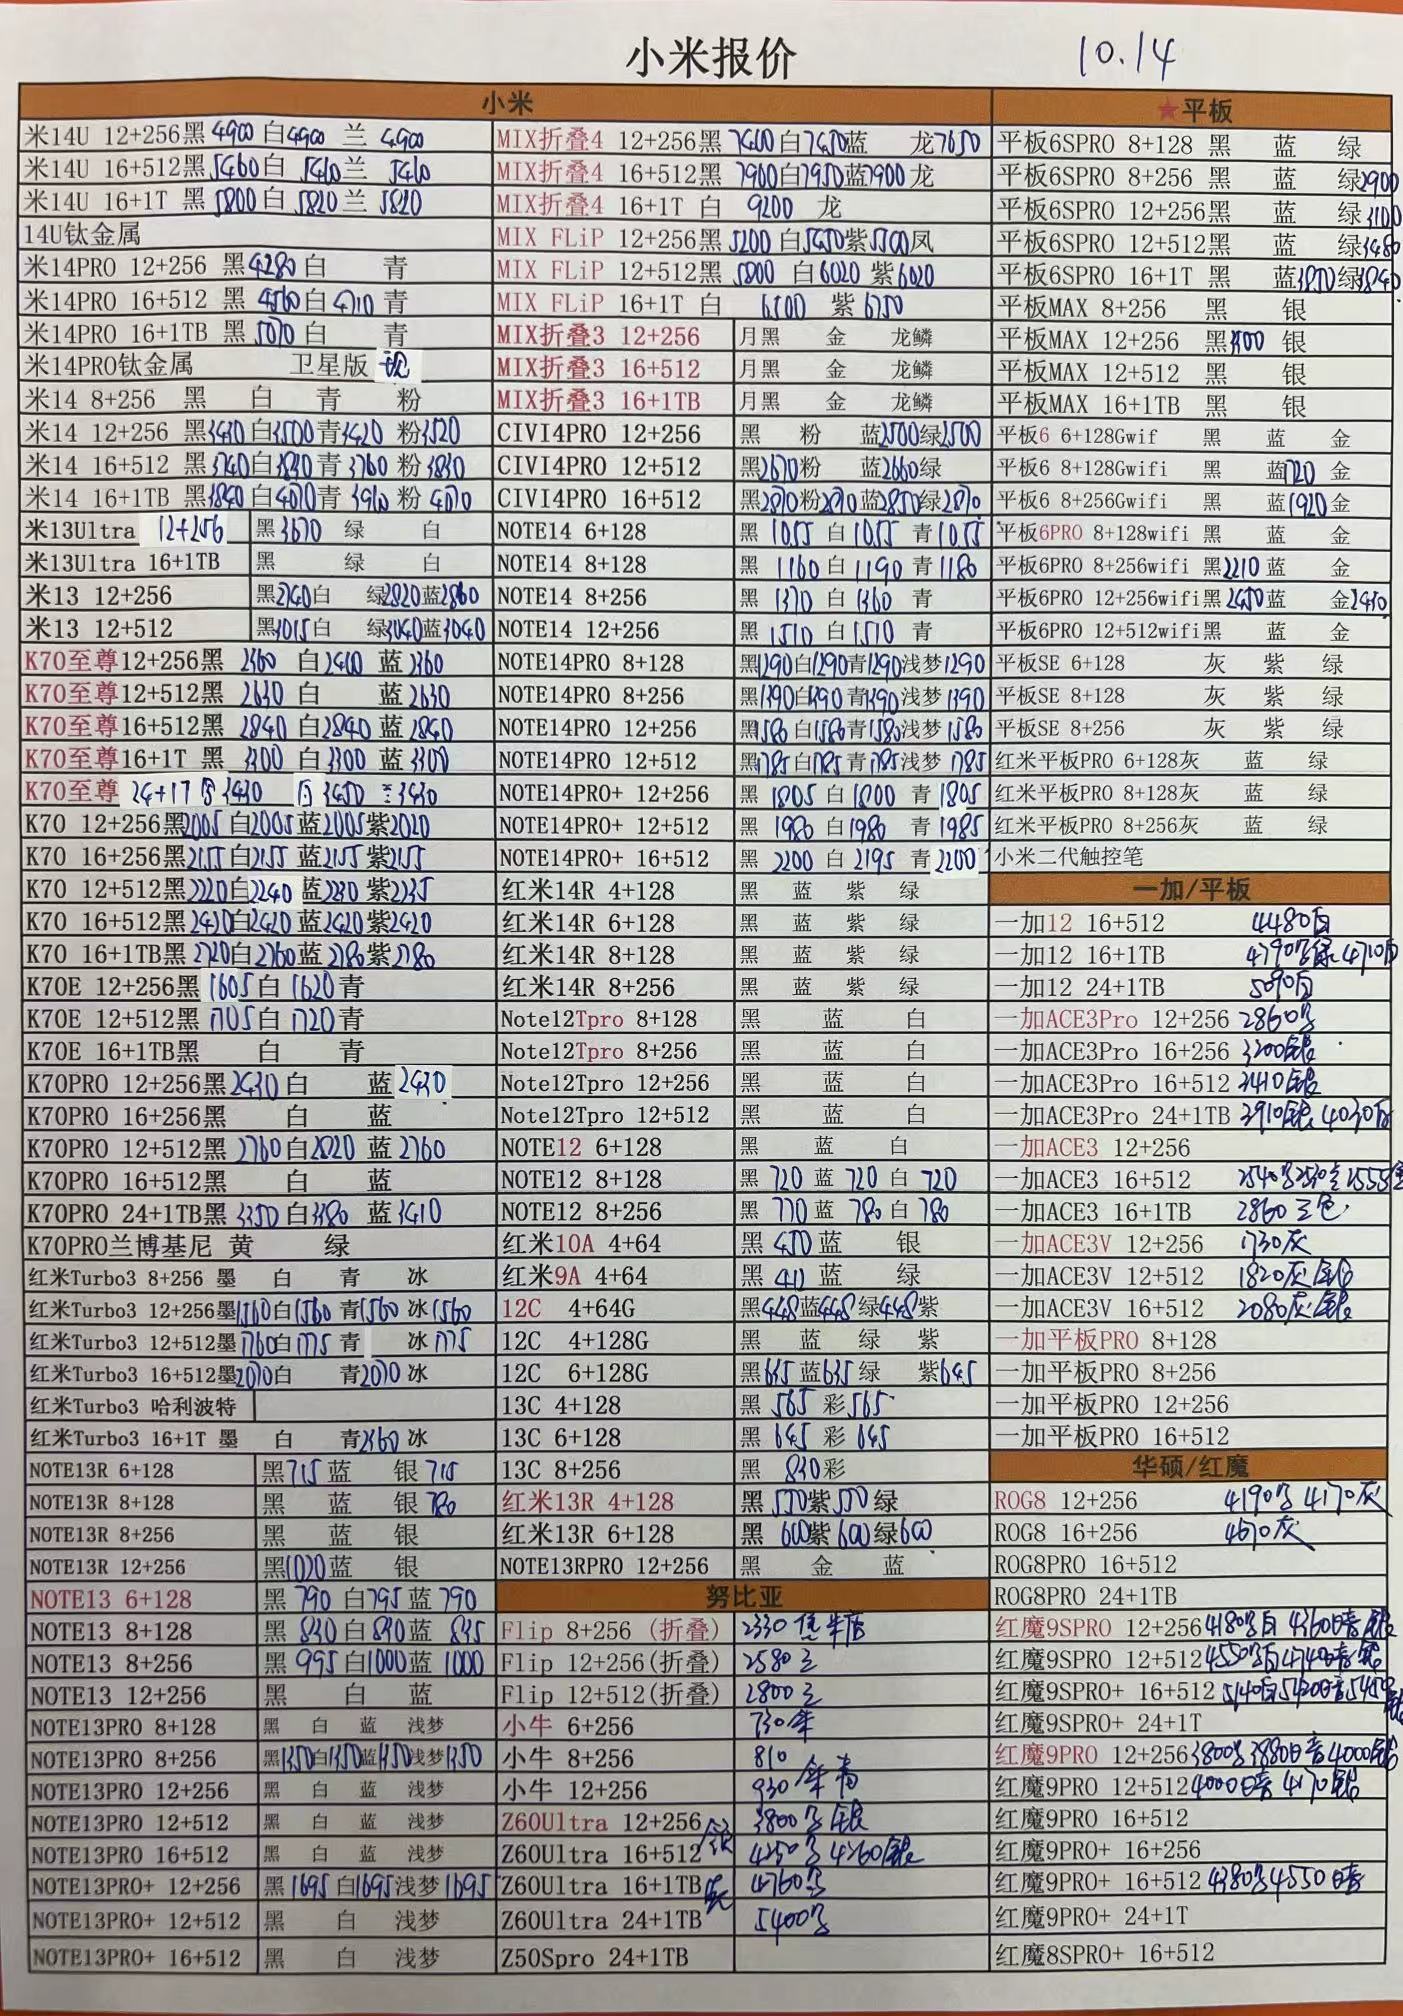 小米报价 10.14
小米
米14U 12+256黑4900白4900 兰 4900
米14U 16+512黑5460白 5460兰 5460
米14U 16+1T 黑 5800白 5820兰 5820
14U钛金属
米14PRO 12+256 黑4280白 青
米14PRO 16+512 黑 4560白4710青
米14PRO 16+1TB 黑 5070白 青
米14PRO钛金属 卫星版
米14 8+256 黑 白 青 粉
米14 12+256 黑3430白3500青3420 粉3520
米14 16+512 黑3740白3830青 3760 粉3830
米14 16+1TB 黑3840白4070青 3910 粉 4070
米13Ultra 12+256 黑3670 绿 白
米13Ultra 16+1TB 黑 绿 白
米13 12+256 黑2740白 绿2820蓝2860
米13 12+512 黑3015白 绿3040蓝3040
K70至尊12+256黑 2360 白2400 蓝2360
K70至尊12+512黑 2630 白 蓝2630
K70至尊16+512黑 2840 白2840 蓝2840
K70至尊16+1T 黑 3300 白3300 蓝3300
K70至尊 24+1T 3430 白3450 3430
K70 12+256黑2005白2005蓝2005紫2020
K70 16+256黑2155白2155 蓝2155紫2155
K70 12+512黑2220白2240 蓝2230 紫2235
K70 16+512黑2420白2420 蓝2420紫2420
K70 16+1TB黑 2720白2760蓝2780紫2780
K70E 12+256黑 1605白 1620青
K70E 12+512黑 1705白 1720青
K70E 16+1TB黑 白 青
K70PRO 12+256黑2430白 蓝2430
K70PRO 16+256黑 白 蓝
K70PRO 12+512黑 2760白2820 蓝2760
K70PRO 16+512黑 白 蓝
K70PRO 24+1TB黑 3350白3380 蓝3410
K70PRO兰博基尼 黄 绿
红米Turbo3 8+256 墨 白 青 冰
红米Turbo3 12+256墨1560白1560 青1560 冰1560
红米Turbo3 12+512墨1760白1775青 冰1775
红米Turbo3 16+512墨2070白 青2070 冰
红米Turbo3 哈利波特
红米Turbo3 16+1T 墨 白 青2360冰
NOTE13R 6+128 黑715蓝 银715
NOTE13R 8+128 黑 蓝 银780
NOTE13R 8+256 黑 蓝 银
NOTE13R 12+256 黑1020蓝 银
NOTE13 6+128 黑 790 白795 蓝 790
NOTE13 8+128 黑 830白830蓝 835
NOTE13 8+256 黑 995白1000蓝 1000
NOTE13 12+256 黑 白 蓝
NOTE13PRO 8+128 黑 白 蓝 浅梦
NOTE13PRO 8+256 黑1350白1350蓝1350浅梦1350
NOTE13PRO 12+256 黑 白 蓝 浅梦
NOTE13PRO 12+512 黑 白 蓝 浅梦
NOTE13PRO 16+512 黑 白 蓝 浅梦
NOTE13PRO+ 12+256 黑1695白1695浅梦1695
NOTE13PRO+ 12+512 黑 白 浅梦
NOTE13PRO+ 16+512 黑 白 浅梦
MIX折叠4 12+256黑 7400白7450蓝 龙7650
MIX折叠4 16+512黑 7900白7950蓝7900龙
MIX折叠4 16+1T 白 9200 龙
MIX FLiP 12+256黑 5200 白5450紫5500凤
MIX FLiP 12+512黑 5800 白6020 紫6020
MIX FLiP 16+1T 白 6500 紫 6750
MIX折叠3 12+256 月黑 金 龙鳞
MIX折叠3 16+512 月黑 金 龙鳞
MIX折叠3 16+1TB 月黑 金 龙鳞
CIVI4PRO 12+256 黑 粉 蓝2500绿2500
CIVI4PRO 12+512 黑2670粉 蓝2660绿
CIVI4PRO 16+512 黑2870粉2870蓝2850绿2870
NOTE14 6+128 黑 1055 白 1055 青1055
NOTE14 8+128 黑 1160 白 1190 青 1180
NOTE14 8+256 黑 1370 白 1360 青
NOTE14 12+256 黑 1510 白 1510 青
NOTE14PRO 8+128 黑1290白1290青1290浅梦1290
NOTE14PRO 8+256 黑1390白1390青1390浅梦1390
NOTE14PRO 12+256 黑1580白1580青1580浅梦1580
NOTE14PRO 12+512 黑1785白1785青1785浅梦1785
NOTE14PRO+ 12+256 黑 1805 白 1800 青 1805
NOTE14PRO+ 12+512 黑 1980 白1980 青 1985
NOTE14PRO+ 16+512 黑 2200 白 2195 青2200
红米14R 4+128 黑 蓝 紫 绿
红米14R 6+128 黑 蓝 紫 绿
红米14R 8+128 黑 蓝 紫 绿
红米14R 8+256 黑 蓝 紫 绿
Note12Tpro 8+128 黑 蓝 白
Note12Tpro 8+256 黑 蓝 白
Note12Tpro 12+256 黑 蓝 白
Note12Tpro 12+512 黑 蓝 白
NOTE12 6+128 黑 蓝 白
NOTE12 8+128 黑 720 蓝 720 白 720
NOTE12 8+256 黑 770 蓝 780 白 780
红米10A 4+64 黑 450蓝 银
红米9A 4+64 黑 411 蓝 绿
12C 4+64G 黑448蓝448绿448紫
12C 4+128G 黑 蓝 绿 紫
12C 6+128G 黑635蓝635绿 紫645
13C 4+128 黑 565 彩565
13C 6+128 黑 645 彩 645
13C 8+256 黑 830彩
红米13R 4+128 黑 550紫550绿
红米13R 6+128 黑 600紫600绿600
NOTE13RPRO 12+256 黑 金 蓝
努比亚
Flip 8+256 (折叠) 2330
Flip 12+256(折叠) 2580
Flip 12+512(折叠) 2800
小牛 6+256 730
小牛 8+256 810
小牛 12+256 930 青
Z60Ultra 12+256 3800 银
Z60Ultra 16+512 4250 4260银
Z60Ultra 16+1TB 4760
Z60Ultra 24+1TB 5400
Z50Spro 24+1TB
★平板
平板6SPRO 8+128 黑 蓝 绿
平板6SPRO 8+256 黑 蓝 绿2900
平板6SPRO 12+256黑 蓝 绿3100
平板6SPRO 12+512黑 蓝 绿3480
平板6SPRO 16+1T 黑 蓝3850绿3840
平板MAX 8+256 黑 银
平板MAX 12+256 黑 银
平板MAX 12+512 黑 银
平板MAX 16+1TB 黑 银
平板6 6+128Gwif 黑 蓝 金
平板6 8+128Gwifi 黑 蓝 金
平板6 8+256Gwifi 黑 蓝1920金
平板6PRO 8+128wifi 黑 蓝 金
平板6PRO 8+256wifi 黑2210 蓝 金
平板6PRO 12+256wifi黑2450蓝 金2430
平板6PRO 12+512wifi黑 蓝 金
平板SE 6+128 灰 紫 绿
平板SE 8+128 灰 紫 绿
平板SE 8+256 灰 紫 绿
红米平板PRO 6+128灰 蓝 绿
红米平板PRO 8+128灰 蓝 绿
红米平板PRO 8+256灰 蓝 绿
小米二代触控笔
一加/平板
一加12 16+512 4480白
一加12 16+1TB 4790 绿 4710白
一加12 24+1TB 5090白
一加ACE3Pro 12+256 2860
一加ACE3Pro 16+256 3200银
一加ACE3Pro 16+512 3410银
一加ACE3Pro 24+1TB 3910银 4030白
一加ACE3 12+256
一加ACE3 16+512 2540
一加ACE3 16+1TB 2860三色
一加ACE3V 12+256 1730灰
一加ACE3V 12+512 1820灰银
一加ACE3V 16+512 2080灰银
一加平板PRO 8+128
一加平板PRO 8+256
一加平板PRO 12+256
一加平板PRO 16+512
华硕/红魔
ROG8 12+256 4190 4170灰
ROG8 16+256 4670灰
ROG8PRO 16+512
ROG8PRO 24+1TB
红魔9SPRO 12+256 4180 白 4360暗 银
红魔9SPRO 12+512 4550 白4740暗 银
红魔9SPRO+ 16+512 5140白5420暗5450
红魔9SPRO+ 24+1T
红魔9PRO 12+256 3800 3880暗 4000银
红魔9PRO 12+512 4000暗 4170银
红魔9PRO 16+512
红魔9PRO+ 16+256
红魔9PRO+ 16+512 4380 4550暗
红魔9PRO+ 24+1T
红魔8SPRO+ 16+512